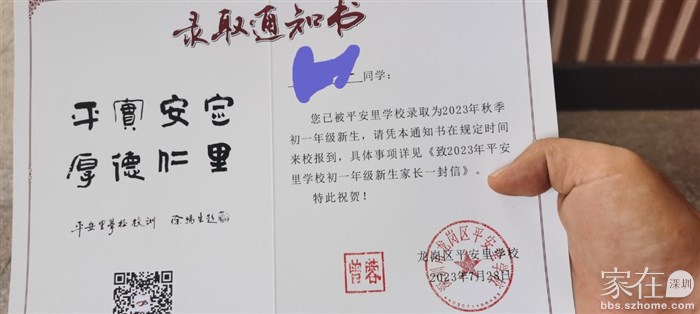 录取通知书
平實安定
厚德仁里
平安里學校校訓 徐揚生題
同学：
您已被平安里学校录取为2023年秋季
初一年级新生，请凭本通知书在规定时间
来校报到，具体事项详见《致2023年平安
里学校初一年级新生家长一封信》。
特此祝贺！
龙岗区平安里学校
2023年7月28日
曾蓉
家在深圳
bbs.szhome.com